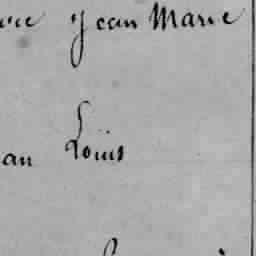 Jean Marie
an Louis